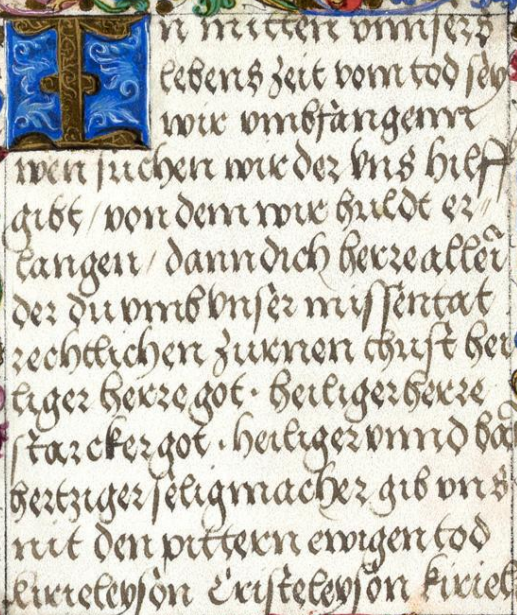 In mitten vnnsers
lebens zeit vom tod sey
wir vmbfangenn
wen suchen wir der vns hilff
gibt / von dem wir huldt er-
langen / dann dich herre allei
der du vmb vnser missentat
rechtlichen zurnen thust hei
liger herre got · heiliger herre
starcker got · heiliger vnnd ba
hertziger seligmacher gib vns
nit den pittern ewigen tod
kirieleyson Cristeleyson kiriel